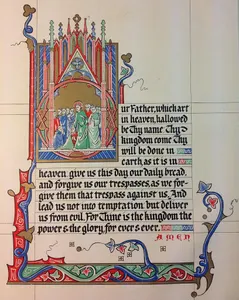 ur Father, which art
in heaven, hallowed
be Thy name Thy
kingdom come Thy
will be done in
earth, as it is in
heaven give us this day our daily bread,
and forgive us our trespasses, as we for-
give them that trespass against us. And
lead us not into temptation but deliver
us from evil. For Thine is the kingdom the
power & the glory, for ever & ever.
AMEN